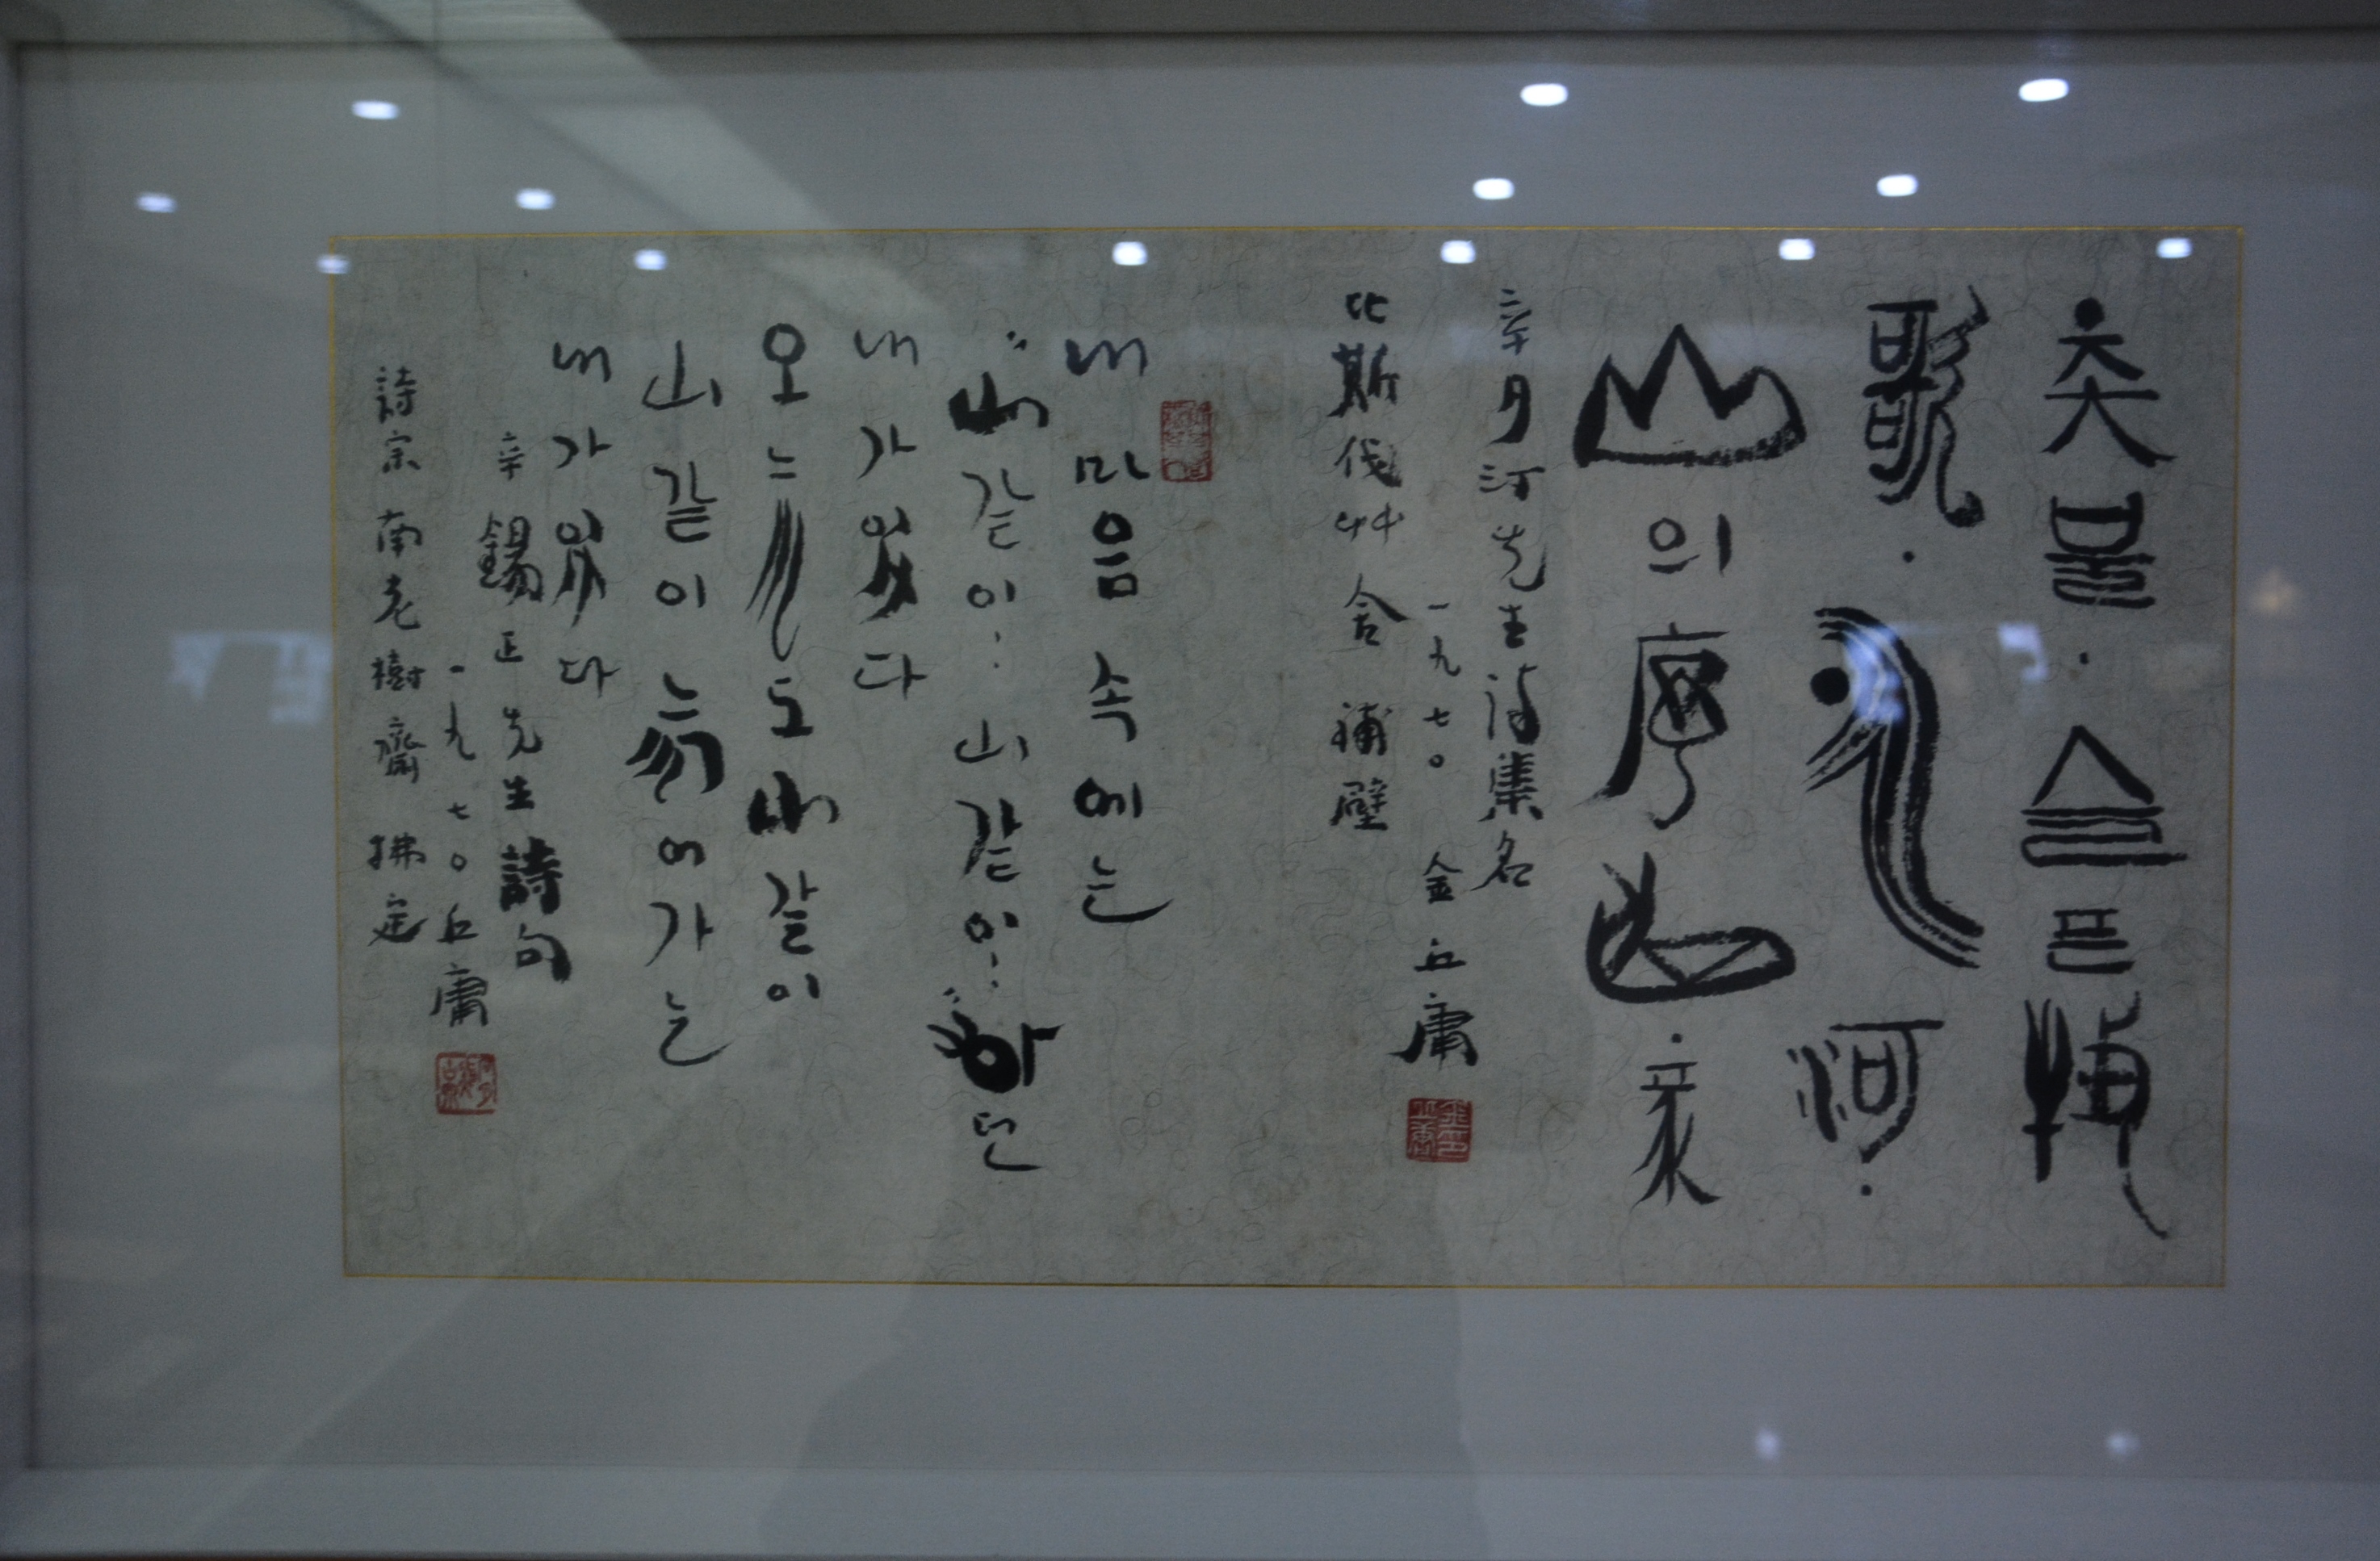 촛불 · 슬픈 牧
歌 · 氷河 ·
山의 序曲 ·
辛夕汀先生詩集名
一九七〇 金丘庸
比斯伐艸舍 補壁
내 마음 속에는
山같이… 山같이… 하던
내가 있다
오늘도 山같이
山같이 늙어가는
내가 있다
辛錫正先生詩句
一九七〇 丘庸
詩宗 南老樹齋